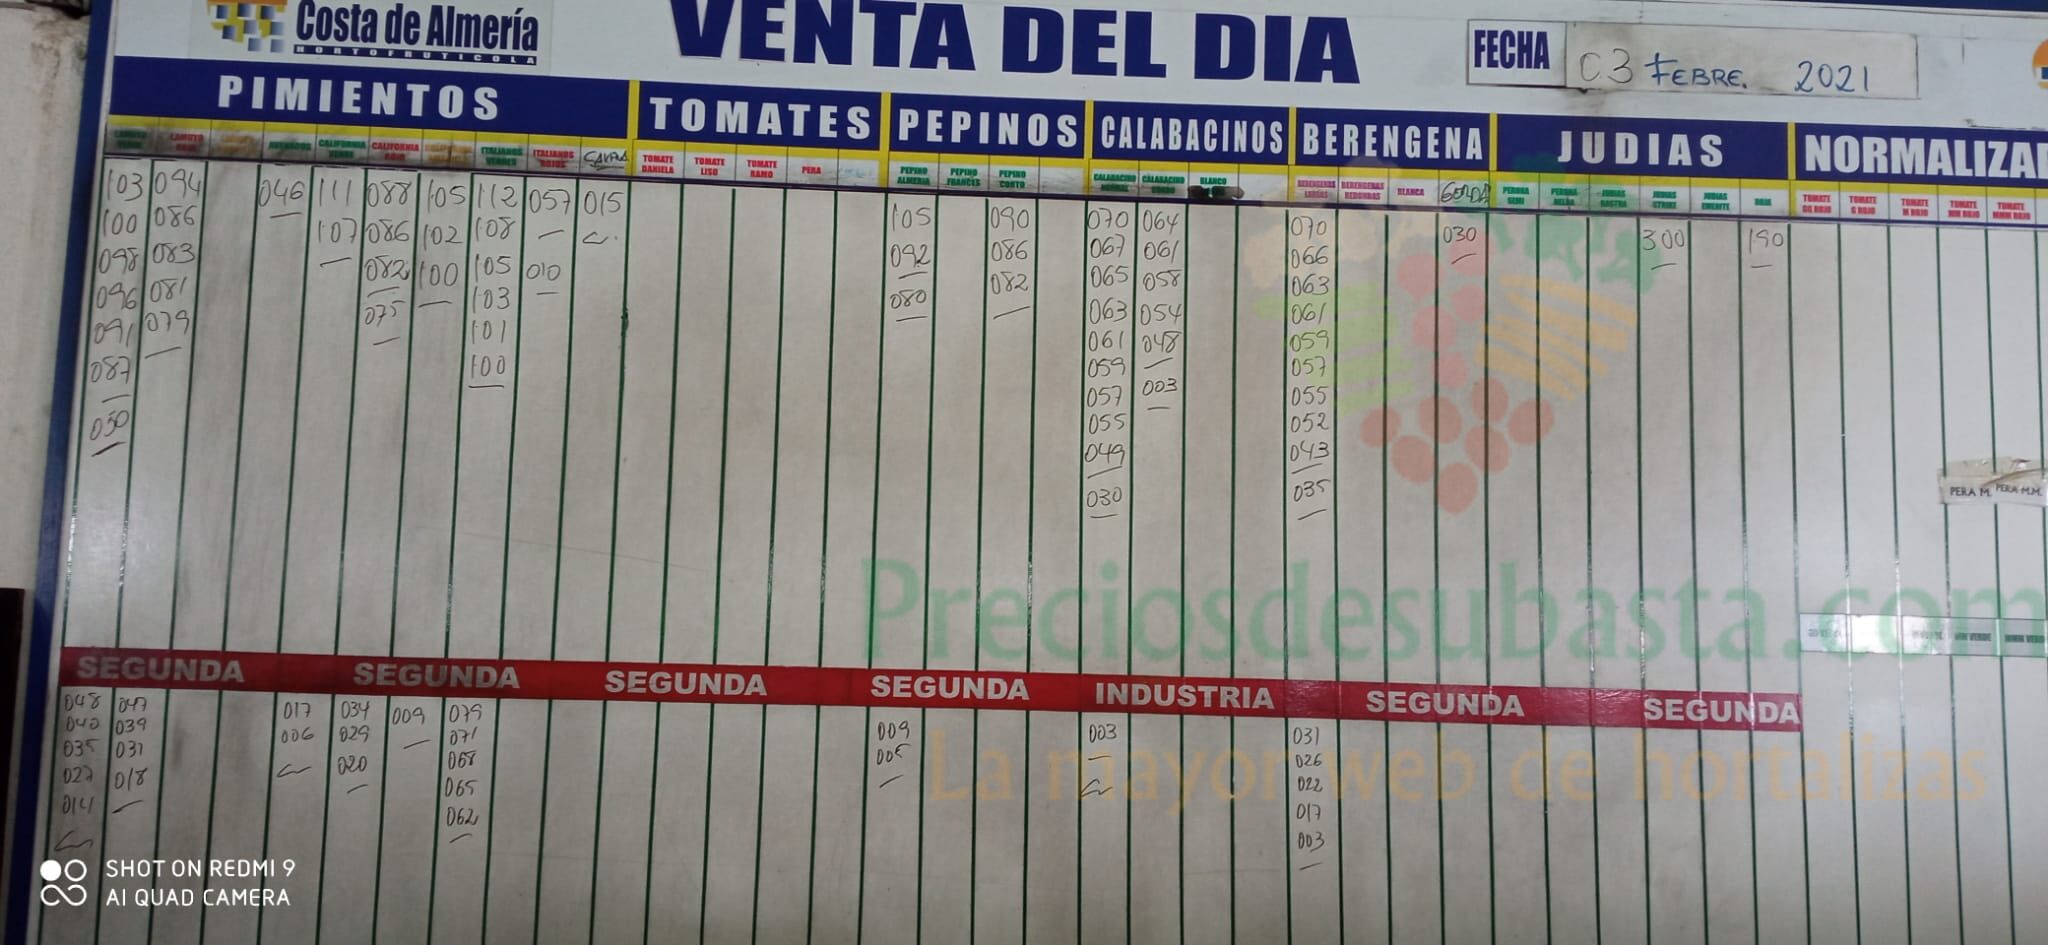 Costa de Almería
HORTOFRUTICOLA
VENTA DEL DIA
FECHA
03 FEBRE. 2021
PIMIENTOS
TOMATES
PEPINOS
CALABACINOS
BERENGENA
JUDIAS
NORMALIZA
CALIFORNIA VERDE
CALIFORNIA ROJO
ITALIANOS VERDES
ITALIANOS ROJOS
TOMATE DANIELA
TOMATE LISO
TOMATE RAMO
PERA
PEPINO ALMERIA
PEPINO FRANCES
PEPINO CORTO
BLANCO
BERENGENAS REDONDAS
BLANCA
GORDA
PERONA SEMI
JUDIAS STRIKE
JUDIAS EMERITE
ROJA
TOMATE GG ROJO
TOMATE G ROJO
TOMATE M ROJO
TOMATE MM ROJO
TOMATE MMM ROJO
103 094 046 111 088 105 112 057 015
100 086 107 086 102 108
098 083 082 100 105 010
096 081 075 103
091 079 101
087 100
050
105 090 070 064 070 030 300 190
092 086 067 061 066
080 082 065 058 063
063 054 061
061 048 059
059 003 057
057 055
055 052
049 043
030 035
PERA M. PERA M.M.
Preciosdesubasta.com
La mayor web de hortalizas
SEGUNDA SEGUNDA SEGUNDA SEGUNDA INDUSTRIA SEGUNDA SEGUNDA
048 047 017 034 009 079 009 003 031
040 039 006 029 071 026
035 031 020 068 022
027 018 065 017
062 003
SHOT ON REDMI 9
AI QUAD CAMERA